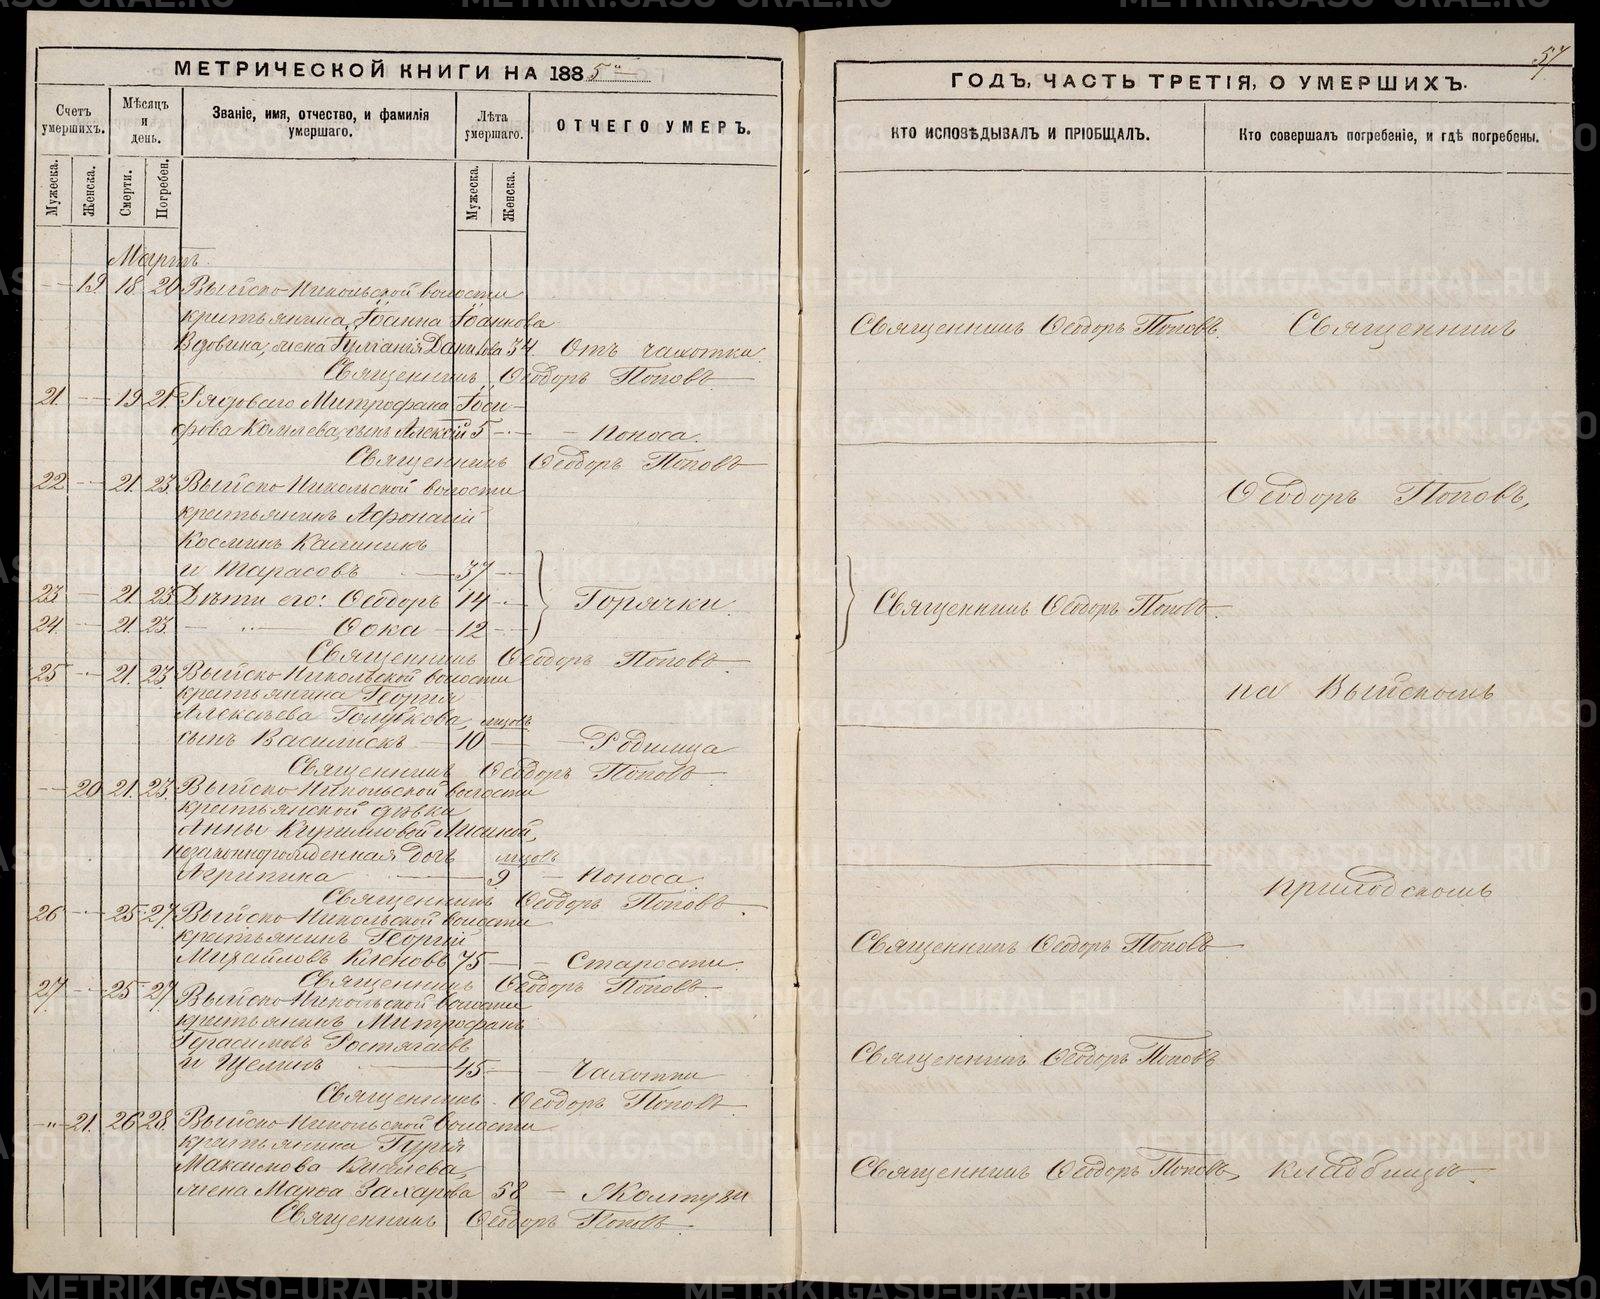 МЕТРИЧЕСКОЙ КНИГИ НА 1885
ГОДЪ, ЧАСТЬ ТРЕТІЯ, О УМЕРШИХЪ.
57
Счетъ умершихъ.
Мѣсяцъ и день.
Званіе, имя, отчество, и фамилія умершаго.
Лѣта умершаго.
ОТЧЕГО УМЕРЪ.
КТО ИСПОВѢДЫВАЛЪ И ПРІОБЩАЛЪ.
Кто совершалъ погребеніе, и гдѣ погребены.
Мужеска.
Женска.
Смерти.
Погребен.
Мужеска.
Женска.
Мартъ
19 18 20 Выйско-Никольской волости
крестьянина Іоанна Іоаннова
Вдовина, жена Іуліанія Данилова 34. Отъ чахотки.
Священникъ Ѳеодоръ Поповъ
21. 19 21 Рядоваго Митрофана Іоси-
фова Комлева, сынъ Алексій 5 Поноса.
Священникъ Ѳеодоръ Поповъ
22 21. 23. Выйско-Никольской волости
крестьянинъ Афонасій
Косминъ Калининъ
и Тарасовъ 37
23 21. 23 Дѣти его: Ѳеодоръ 14 Горячки.
24. 21. 23. Ѳока 12
Священникъ Ѳеодоръ Поповъ
25 21. 23. Выйско-Никольской волости
крестьянина Георгія
Алексѣева Голубкова, мцовъ
сынъ Василискъ 10 Родимца
Священникъ Ѳеодоръ Поповъ
20 21. 23. Выйско-Никольской волости
крестьянской дѣвки
Анны Кирилловой
незаконнорожденная дочь мцовъ
Агрипина 9 Поноса.
Священникъ Ѳеодоръ Поповъ
26 25 27 Выйско-Никольской волости
крестьянинъ Георгій
Михайловъ 75 Старости.
Священникъ Ѳеодоръ Поповъ
27 25 27 Выйско-Никольской волости
крестьянинъ Митрофанъ
Герасимовъ Ростягаевъ
и Щелинъ 45 Чахотки
Священникъ Ѳеодоръ Поповъ
21. 26 28. Выйско-Никольской волости
крестьянина Гурія
Максимова Киселева,
жена Марѳа Захарова 58
Священникъ Ѳеодоръ Поповъ
Священникъ Ѳеодоръ Поповъ.
Священникъ Ѳеодоръ Поповъ
Священникъ Ѳеодоръ Поповъ
Священникъ Ѳеодоръ Поповъ
Священникъ Ѳеодоръ Поповъ,
Священникъ
Ѳеодоръ Поповъ,
на Выйскомъ
приходскомъ
кладбищѣ.
METRIKI.GASO-URAL.RU